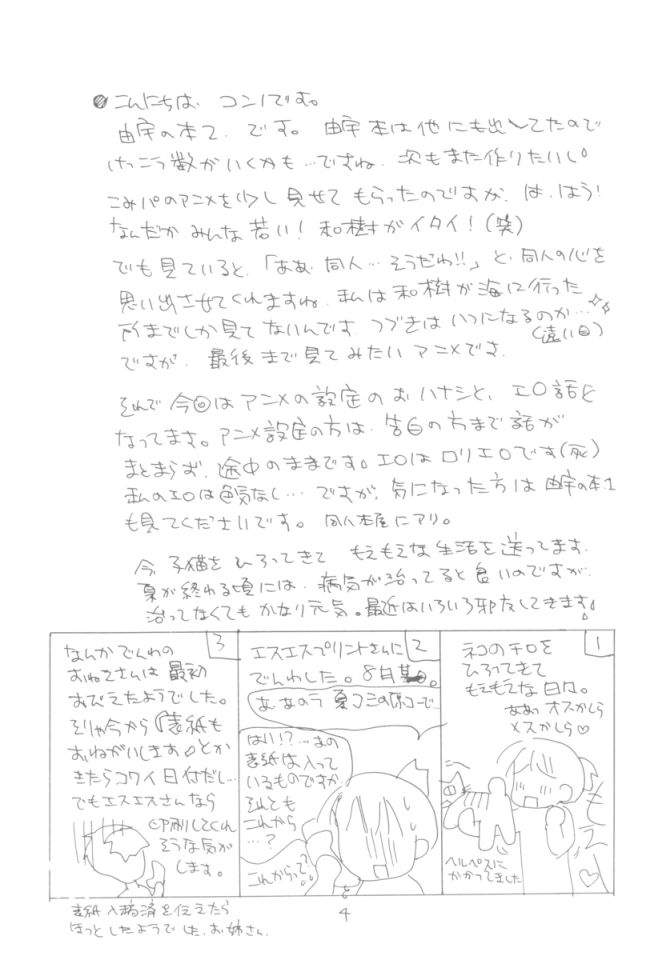 こんにちは、コンノです。
由宇の本2、です。由宇本は他にも出してたので
けっこう数がいくかも…ですね、次もまた作りたいし。
こみパのアニメを少し見せてもらったのですが、は、はう!
なんだかみんな若い!和樹がイタイ!(笑)
でも見ていると、「ああ、同人…そうだわ!!」と、同人の心を
思い出させてくれますね、私は和樹が海に行った
所までしか見てないんです つづきはいつになるのか…
(遠い目)
ですが、最後まで見てみたいアニメです。
それで今回はアニメの設定のおハナシと、エロ話と
なってます。アニメ設定の方は、告白の方まで話が
まとまらず、途中のままです。エロはロリエロです(死)
私のエロは色気なし…ですが、気になった方は由宇の本1
も見てくださいです。同人本屋にアリ。
今、子猫をひろってきて もえもえな生活を送ってます。
夏が終わる頃には、病気が治ってると良いのですが、
治ってなくてもかなり元気。最近はいろいろ邪魔してきます♪
1
ネコのチロを
ひろってきて
もえもえな日々。
ああっオスかしら
メスかしら♡
もえ
♡
ヘルペスに
かかってました
2
エスエスプリントさんに
でんわした。8月某日。
あ、あのう夏コミの原コーで…
はい!?…あの
表紙は入って
いるものですか
それとも
これから
…?
これからって?
3
なんかでんわの
おねえさんは最初
おびえたようでした。
そりゃ今から『表紙も
おねがいします♪』とか
きたらコワイ日付だし…
でもエスエスさんなら
印刷してくれ
そうな気が
します。
表紙入稿済を伝えたら
ほっとしたようでした、お姉さん。
4